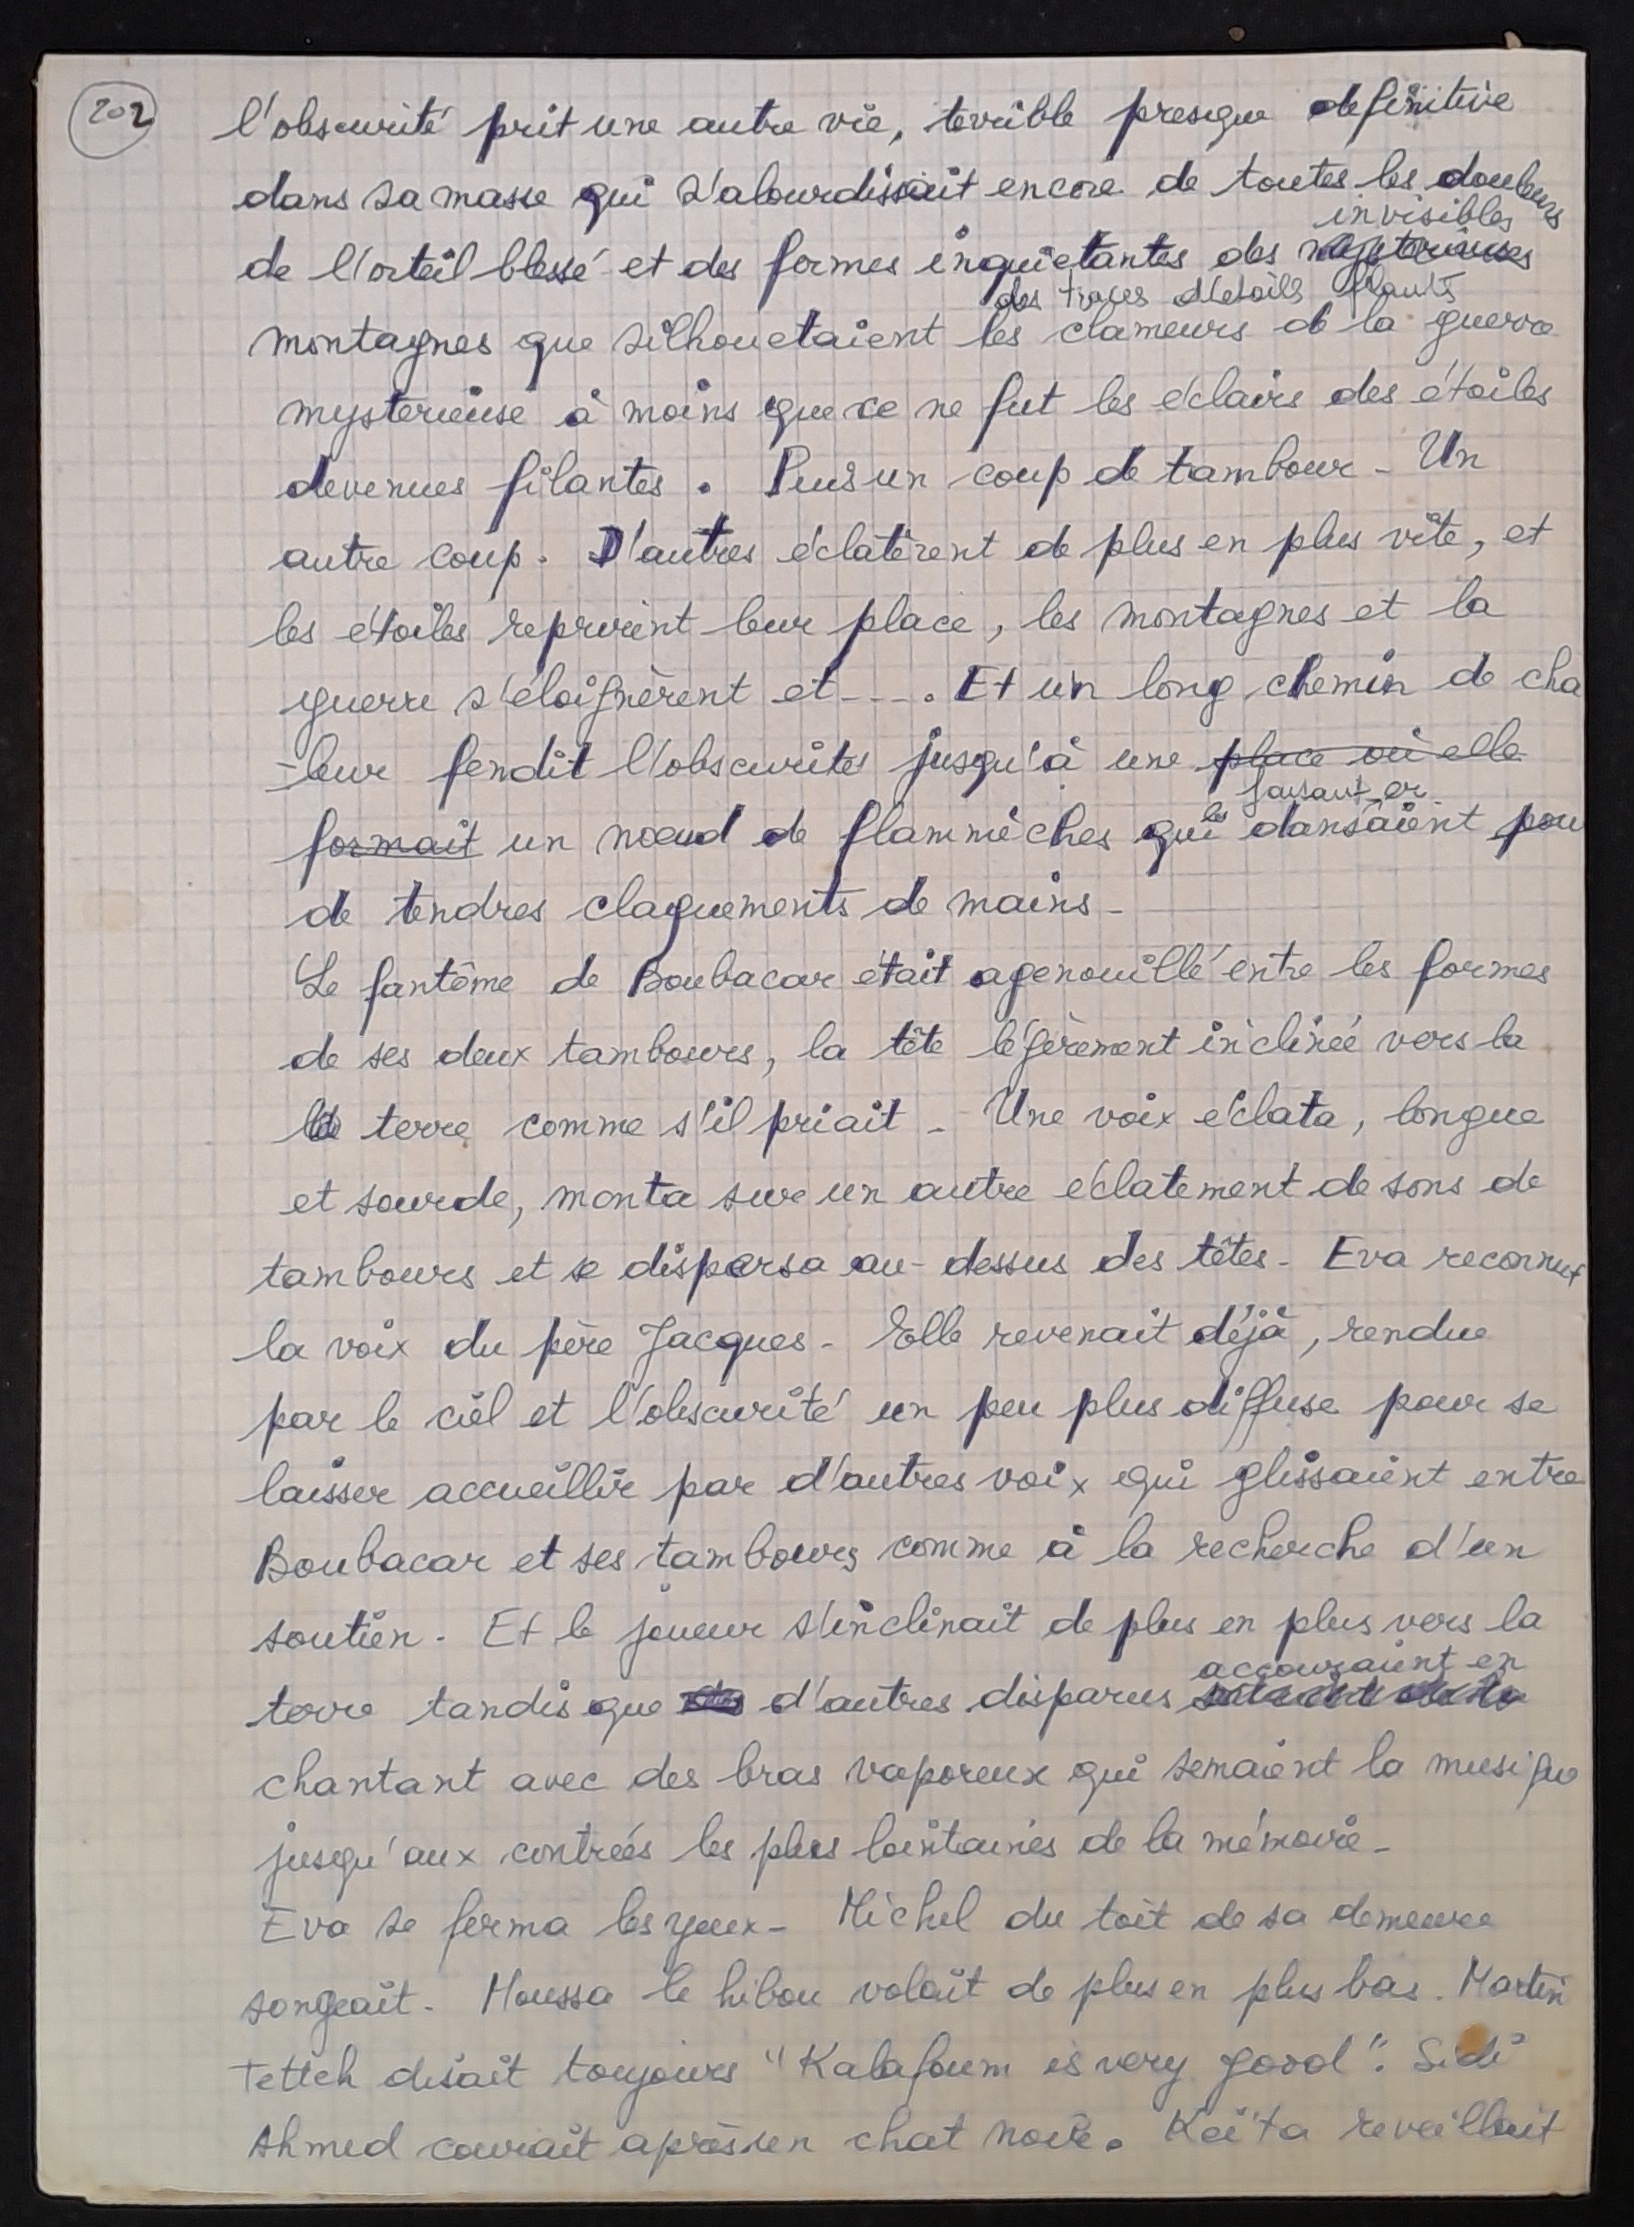 202
l'obscurité prit une autre vie, terrible presque definitive
dans sa masse qui s'alourdissait encore de toutes les douleurs
invisibles
de l'orteil blessé et des formes inquiétantes des mysterieuses
des traces d'etoiles filants
montagnes que silhouetaient les clameurs de la guerre
mysterieuse à moins que ce ne fut les éclairs des étoiles
devenues filantes. Puis un coup de tambour - Un
autre coup. D'autres éclatèrent de plus en plus vite, et
les étoiles reprirent leur place, les montagnes et la
guerre s'éloignèrent et - - - . Et un long chemin de cha
-leur fendit l'obscurités jusqu'à une place où elle
faisant er
formait un nœud de flammèches qui les dansaient pou
de tendres claquements de mains -
Le fantôme de Boubacar était agenouillé entre les formes
de ses deux tambours, la tête légèrement inclinée vers la
la terre comme s'il priait - Une voix éclata, longue
et sourde, monta sur un autre éclatement de sons de
tambours et se dispersa au-dessus des têtes - Eva reconnut
la voix du père Jacques - Elle revenait déjà, rendue
par le ciel et l'obscurité un peu plus diffuse pour se
laisser accueillir par d'autres voix qui glissaient entre
Boubacar et ses tambours comme à la recherche d'un
soutien - Et le joueur s'inclinait de plus en plus vers la
accouraient en
terre tandis que d'autres disparus
chantant avec des bras vaporeux qui semaient la musique
jusqu'aux contrées les plus lointaines de la mémoire -
Eva se ferma les yeux - Michel du toit de sa demeure
songeait - Moussa le hibou volait de plus en plus bas. Martin
Tetteh disait toujours "Kalafoum is very good". Sidi
Ahmed courait après un chat noir. Keïta reveillait